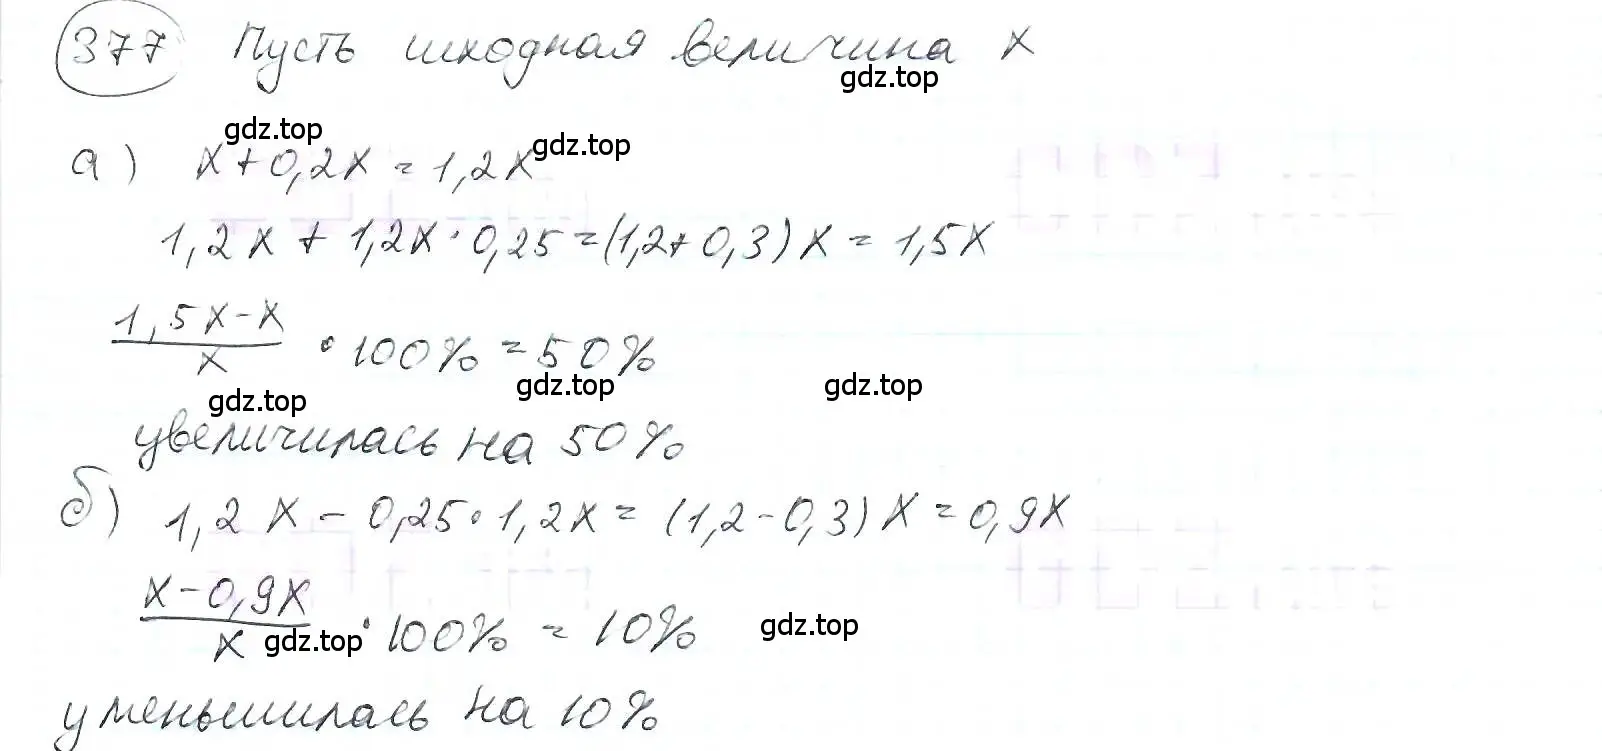 377 Пусть исходная величина x
gdz.top
gdz.top
gdz.top
а) x+0,2x = 1,2x
1,2x + 1,2x · 0,25 = (1,2+0,3)x = 1,5x
1,5x-x
x
· 100% = 50%
gdz.top
gdz.top
gdz.top
увеличилась на 50%
б) 1,2x - 0,25·1,2x = (1,2-0,3)x = 0,9x
x-0,9x
x
gdz.top
· 100% = 10%
gdz.top
уменьшилась на 10%